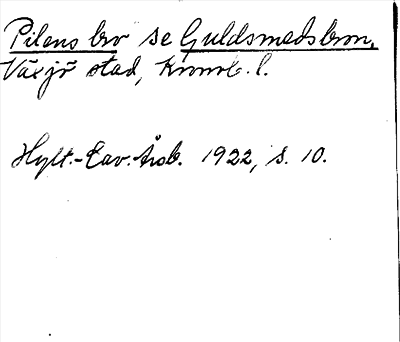 Pilens bro se Guldsmedsbron.
Växjö stad, Kronob. l.
Hylt.-Cav. Årsb. 1922, s. 10.